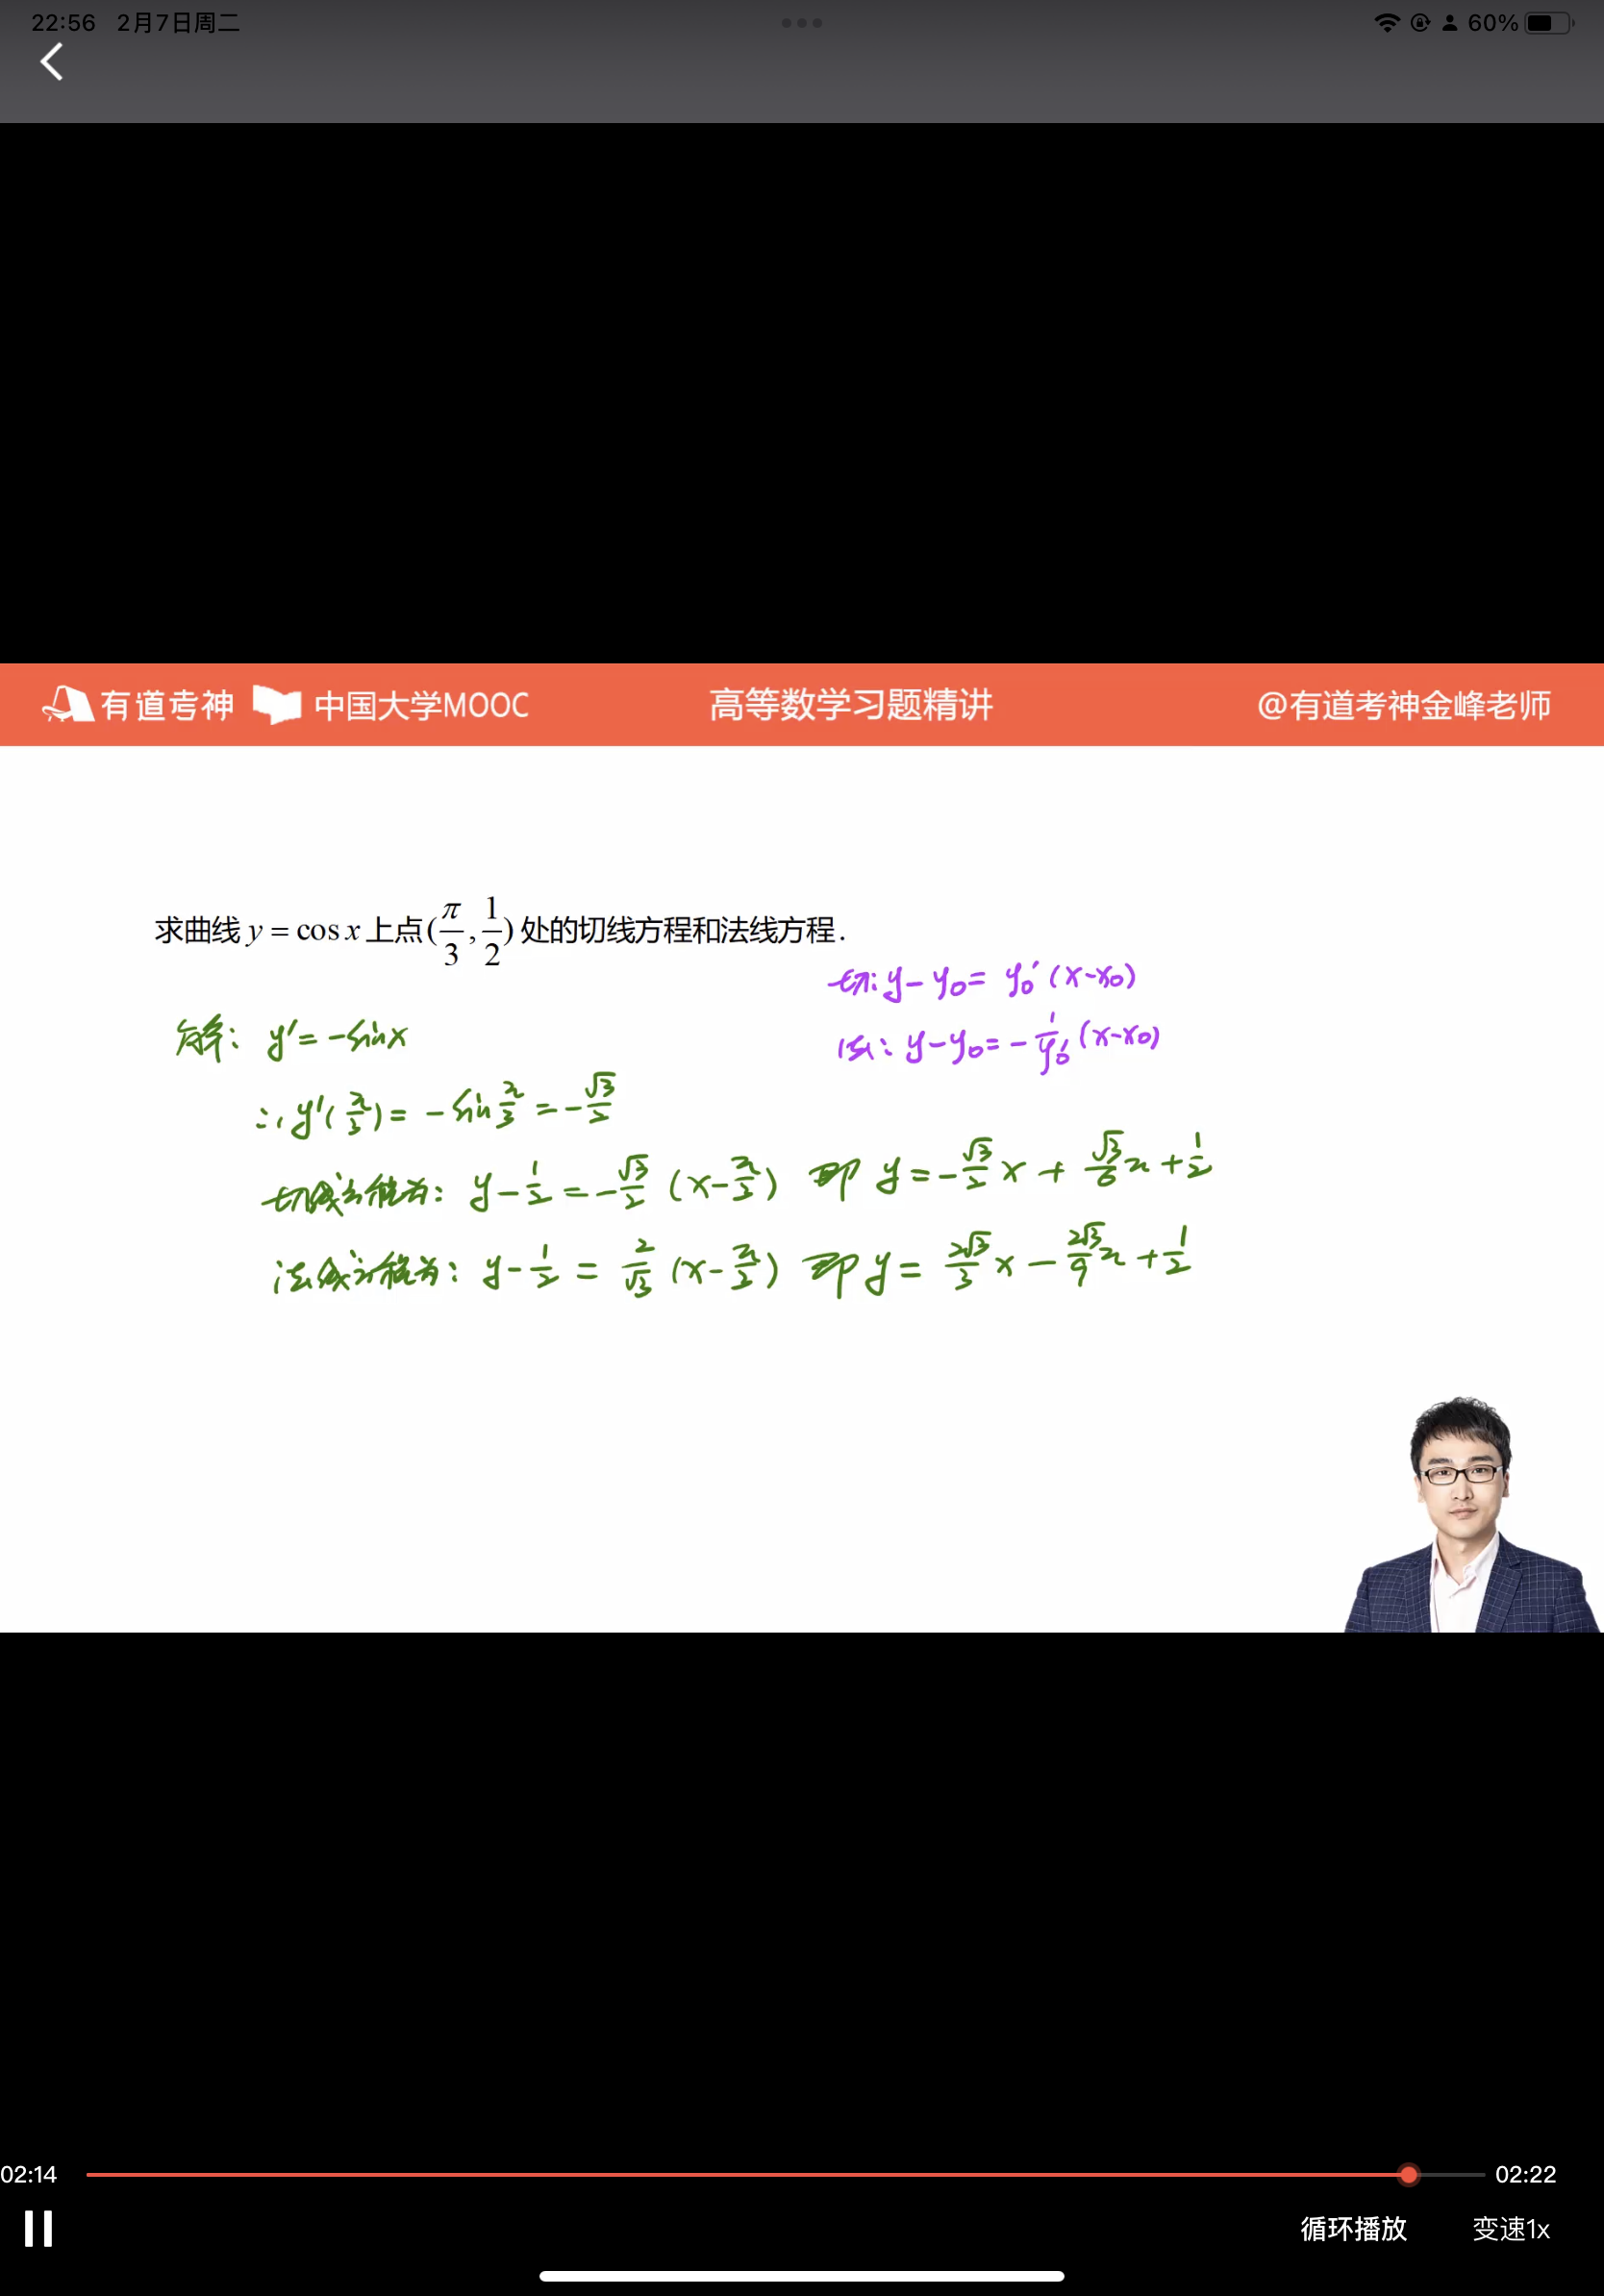 22:56 2月7日周二 60%
有道考神 中国大学MOOC 高等数学习题精讲 @有道考神金峰老师
求曲线 y = cos x 上点(π/3, 1/2) 处的切线方程和法线方程.
切: y - y₀ = y₀′(x-x₀)
法: y - y₀ = - 1/y₀′ (x-x₀)
解: y′ = -sinx
∴ y′(π/3) = -sin π/3 = -√3/2
切线方程为: y - 1/2 = -√3/2 (x - π/3) 即 y = -√3/2 x + √3/6 π + 1/2
法线方程为: y - 1/2 = 2/√3 (x - π/3) 即 y = 2√3/3 x - 2√3/9 π + 1/2
02:14 02:22
循环播放 变速1x